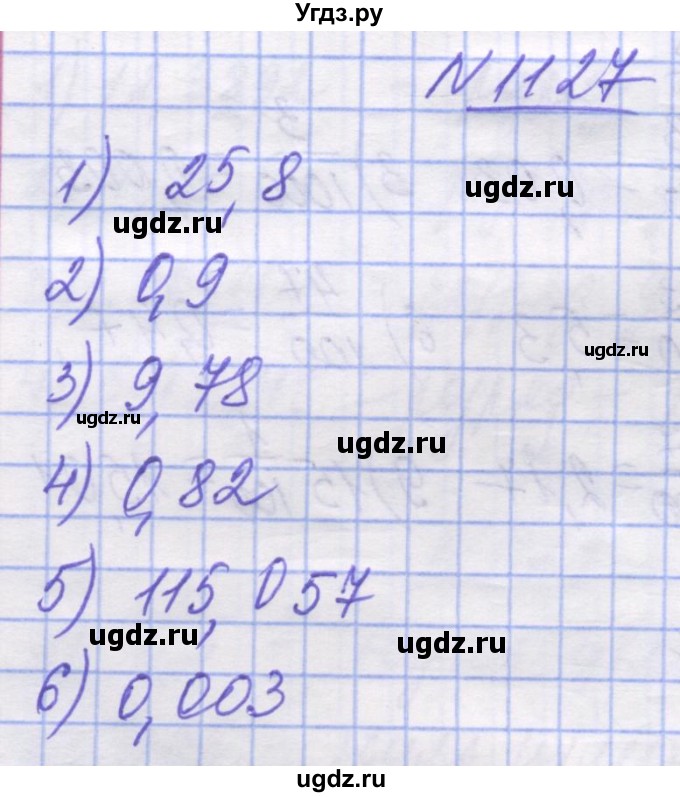 Угдз.ру
N 1127
1) 25,8
ugdz.ru
ugdz.ru
2) 0,9
ugdz.ru
3) 9,78
ugdz.ru
ugdz.ru
4) 0,82
5) 115,057
ugdz.ru
ugdz.ru
6) 0,003
ugdz.ru